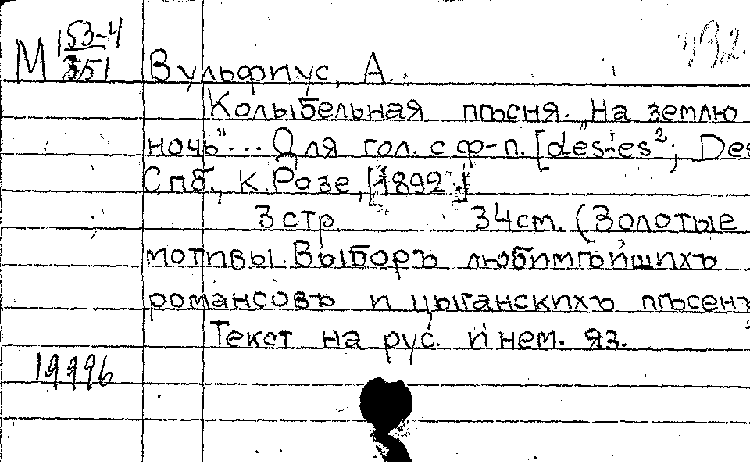 М 153-4
351
Вульфиус, А.
Колыбельная пѣсня. "На землю
ночь"... Для гол. с ф-п. [des-es²; Des
Спб., К. Розе, [1892].
3 стр. 34 см. (Золотые
мотивы. Выборъ любимѣйшихъ
романсовъ и цыганскихъ пѣсенъ
Текст на рус. и нем. яз.
19996